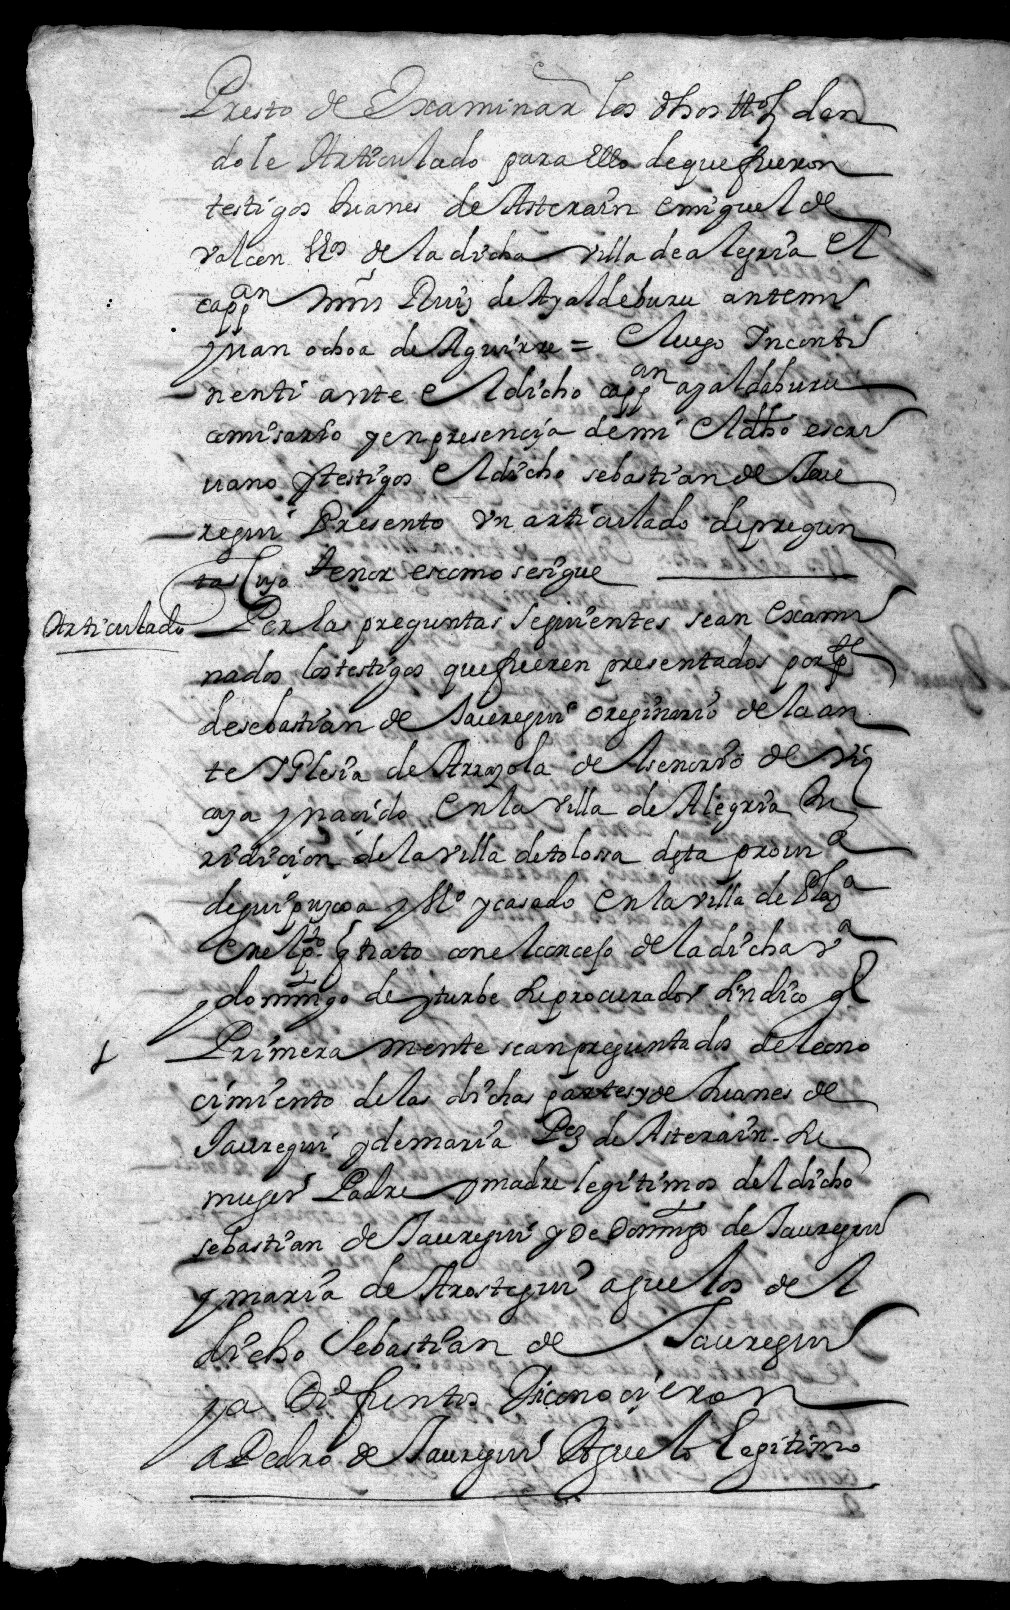 Presto de Examinar los dhos ttos dan
dole Articulado para ello de que fueron
testigos Juanes de Asterain e miguel de
valcon Vos de la dicha villa de alegria El
cappan mnis Ruiz de Ayaldeburu ante mi
Juan ochoa de Aguirre = E luego Inconti
nenti ante el dicho cappan ayaldeburu
comisario y en presencya de mi El dho escri
uano y testigos El dicho sebastian de Jaue
regui Presento vn articulado de pregun
tas Cuyo tenor es como se sigue
Articulado
Por las preguntas siguientes sean Exami
nados los testigos que fueren presentados por pte
de sebastian de Jauregui originario de la an
te Yglesia de Arrazola del senorio de viz
caya y nacido En la villa de Alegria Ju
ridicion de la villa de tolossa desta prouia
de guipuzcoa y Vo y casado En la villa de Plaza
En el pto y trato con el concejo de la dicha va
y domingo de yturbe su procurador sindico gl
1 Primera mente sean preguntados del cono
cimiento de las dichas partes y de Juanes de
Jauregui y de maria Pez de Asterain su
muger Padre y madre legitimos del dicho
sebastian de Jauregui y de Domingo de Jauregui
y maria de Arostegui aguelos del
dicho Sebastian de Jauregui
ya Difuntos si conocieron
a Pedro de Jauregui Aguelo legitimo